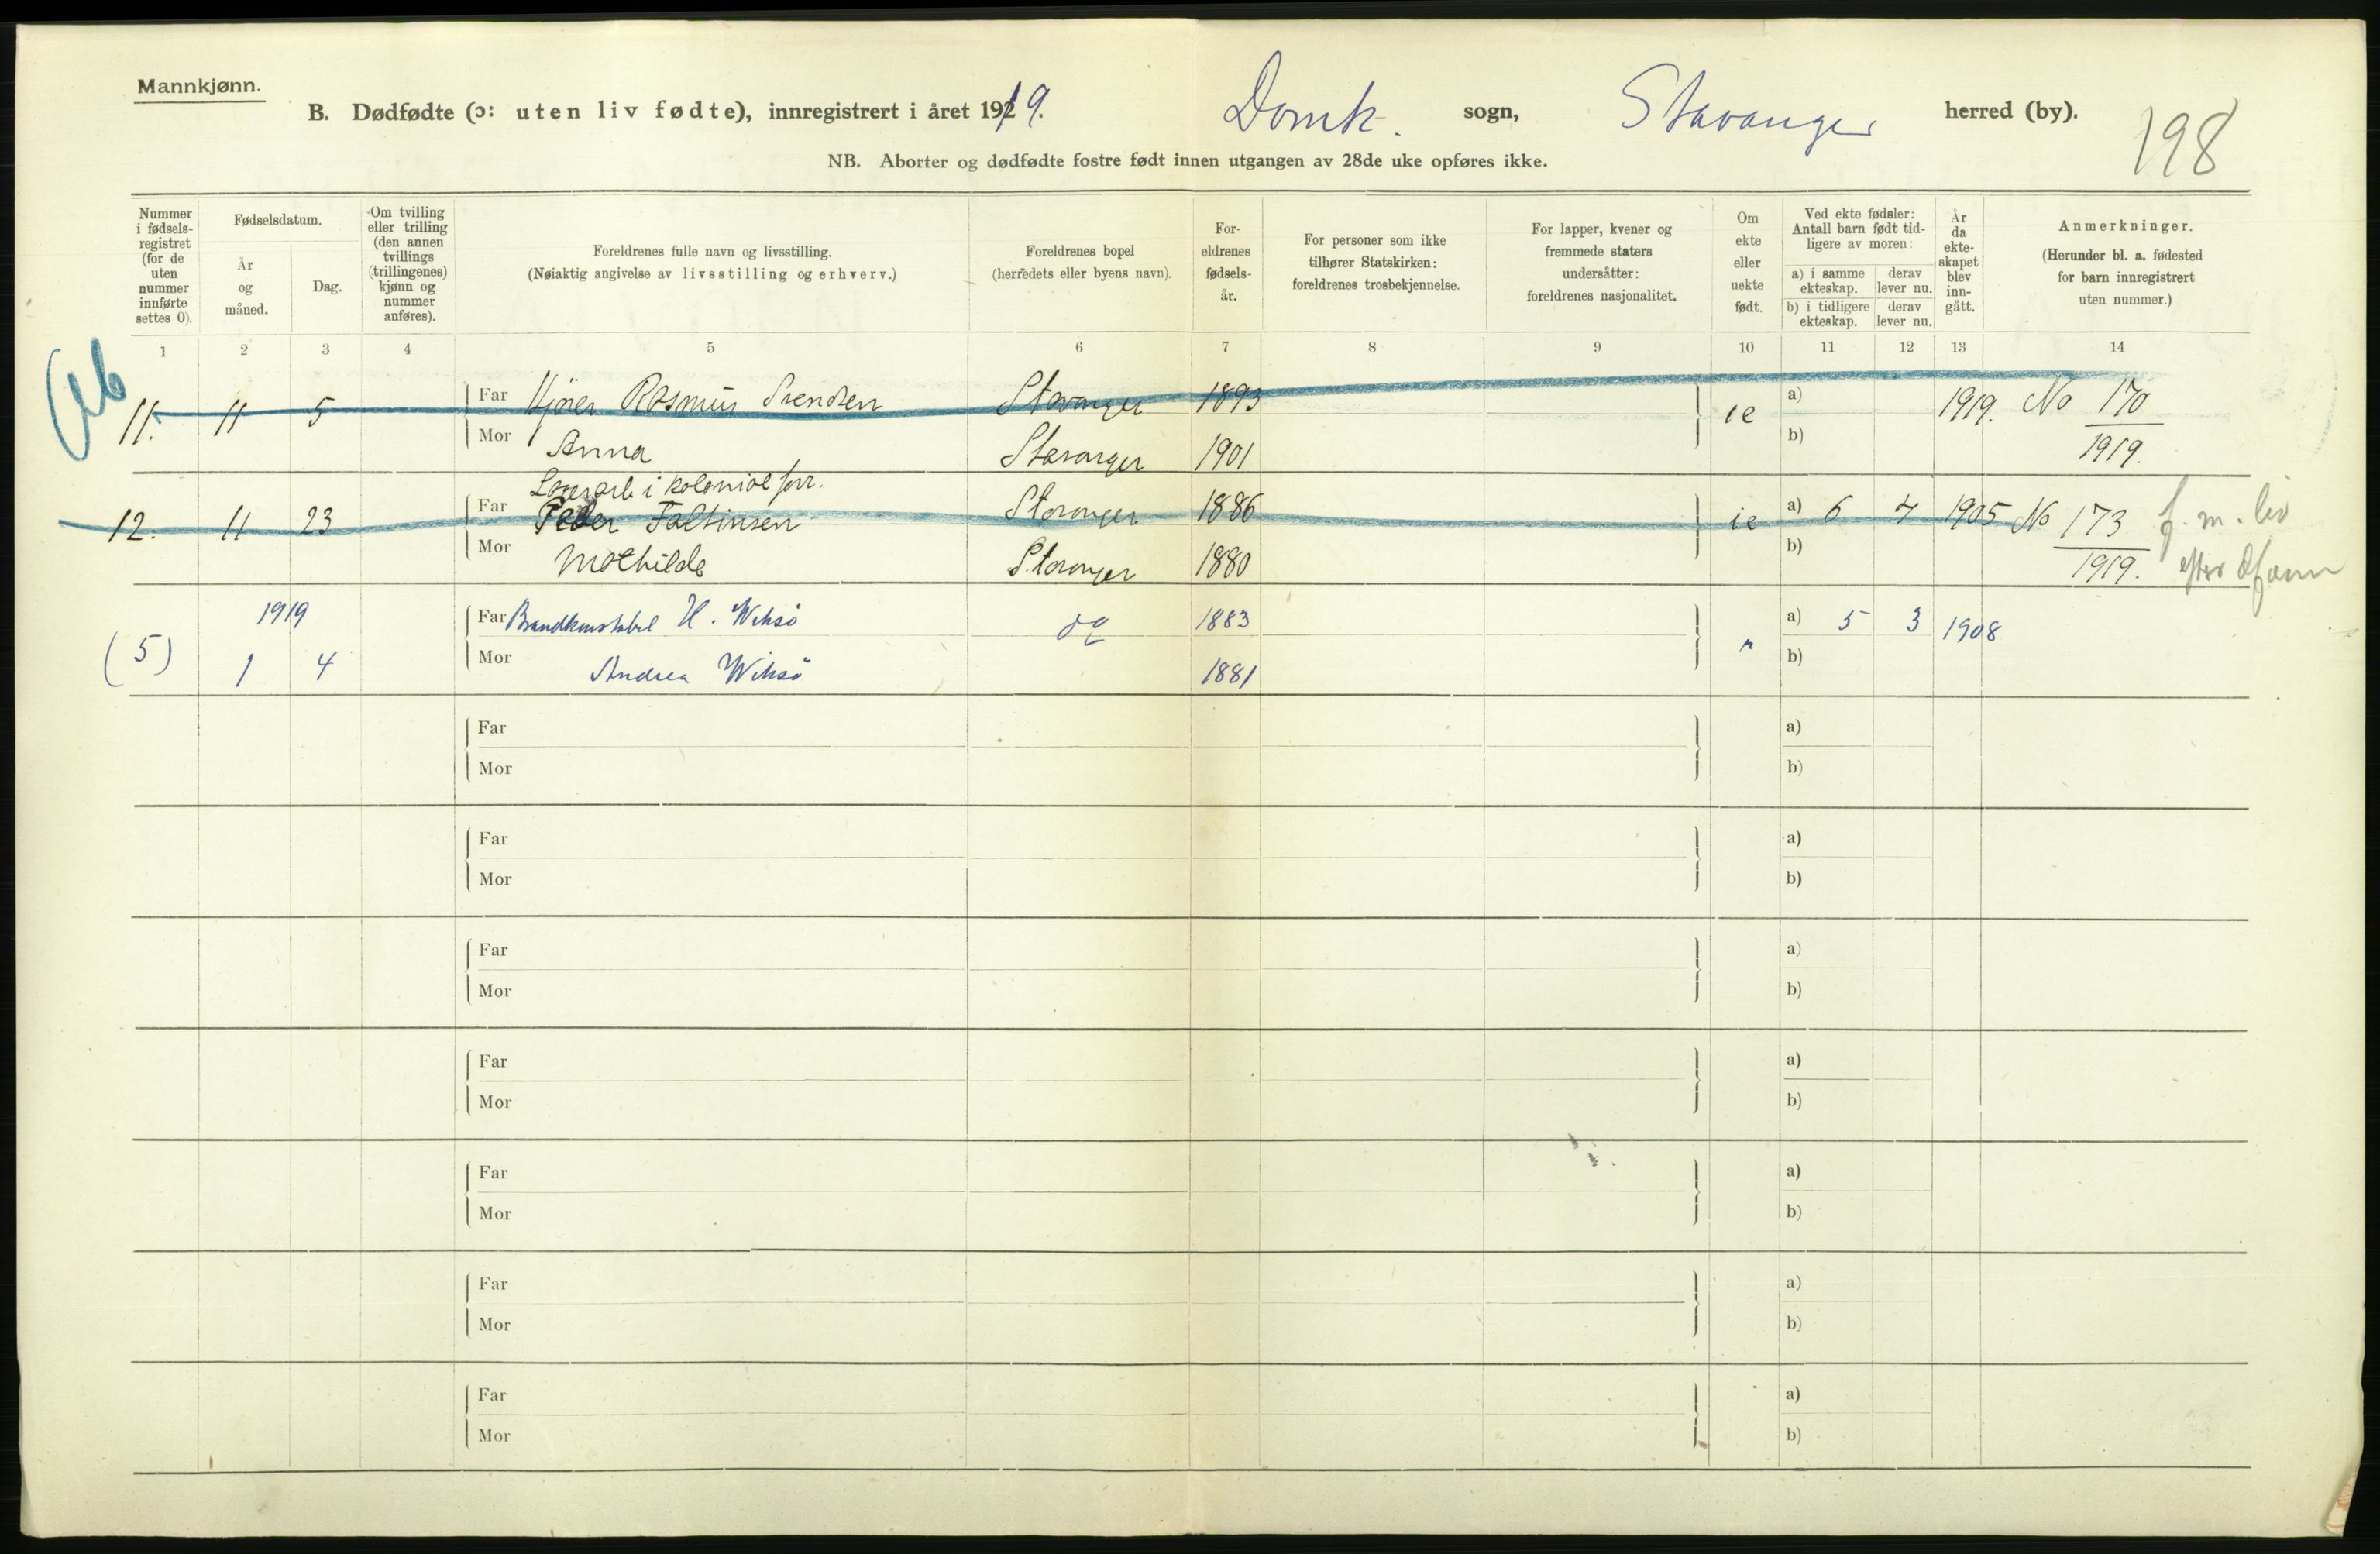 Mannkjønn.
B. Dødfødte (ɔ: uten liv fødte), innregistrert i året 1919. Domk. sogn, Stavanger herred (by).
198
NB. Aborter og dødfødte fostre født innen utgangen av 28de uke opføres ikke.
Nummer i fødselsregistret (for de uten nummer innførte settes 0).
Fødselsdatum.
År og måned.
Dag.
Om tvilling eller trilling (den annen tvillings (trillingenes) kjønn og nummer anføres).
Foreldrenes fulle navn og livsstilling.
(Nøiaktig angivelse av livsstilling og erhverv.)
Foreldrenes bopel
(herredets eller byens navn).
Foreldrenes fødselsår.
For personer som ikke tilhører Statskirken: foreldrenes trosbekjennelse.
For lapper, kvener og fremmede staters undersåtter: foreldrenes nasjonalitet.
Om ekte eller uekte født.
Ved ekte fødsler: Antall barn født tidligere av moren:
a) i samme ekteskap.
derav lever nu.
b) i tidligere ekteskap.
derav lever nu.
År da ekteskapet blev inngått.
Anmerkninger.
(Herunder bl. a. fødested for barn innregistrert uten nummer.)
1 2 3 4 5 6 7 8 9 10 11 12 13 14
11. 11 5 Far Rasmus Svendsen Stavanger 1893 ie a) 1919. No 170
Mor Anna Stavanger 1901 b) 1919.
i kolonial forr.
12. 11 23 Far Peder Faltinsen Stavanger 1886 ie a) 6 4 1905 No 173 f. m. liv
Mor Mathilde Stavanger 1880 b) 1919. efter
1919 Far Brandkonstabel H. Viksø 1883 a) 5 3 1908
(5) 1 4 Mor Andrea Viksø 1881 " b)
Far a)
Mor b)
Far a)
Mor b)
Far a)
Mor b)
Far a)
Mor b)
Far a)
Mor b)
Far a)
Mor b)
Far a)
Mor b)